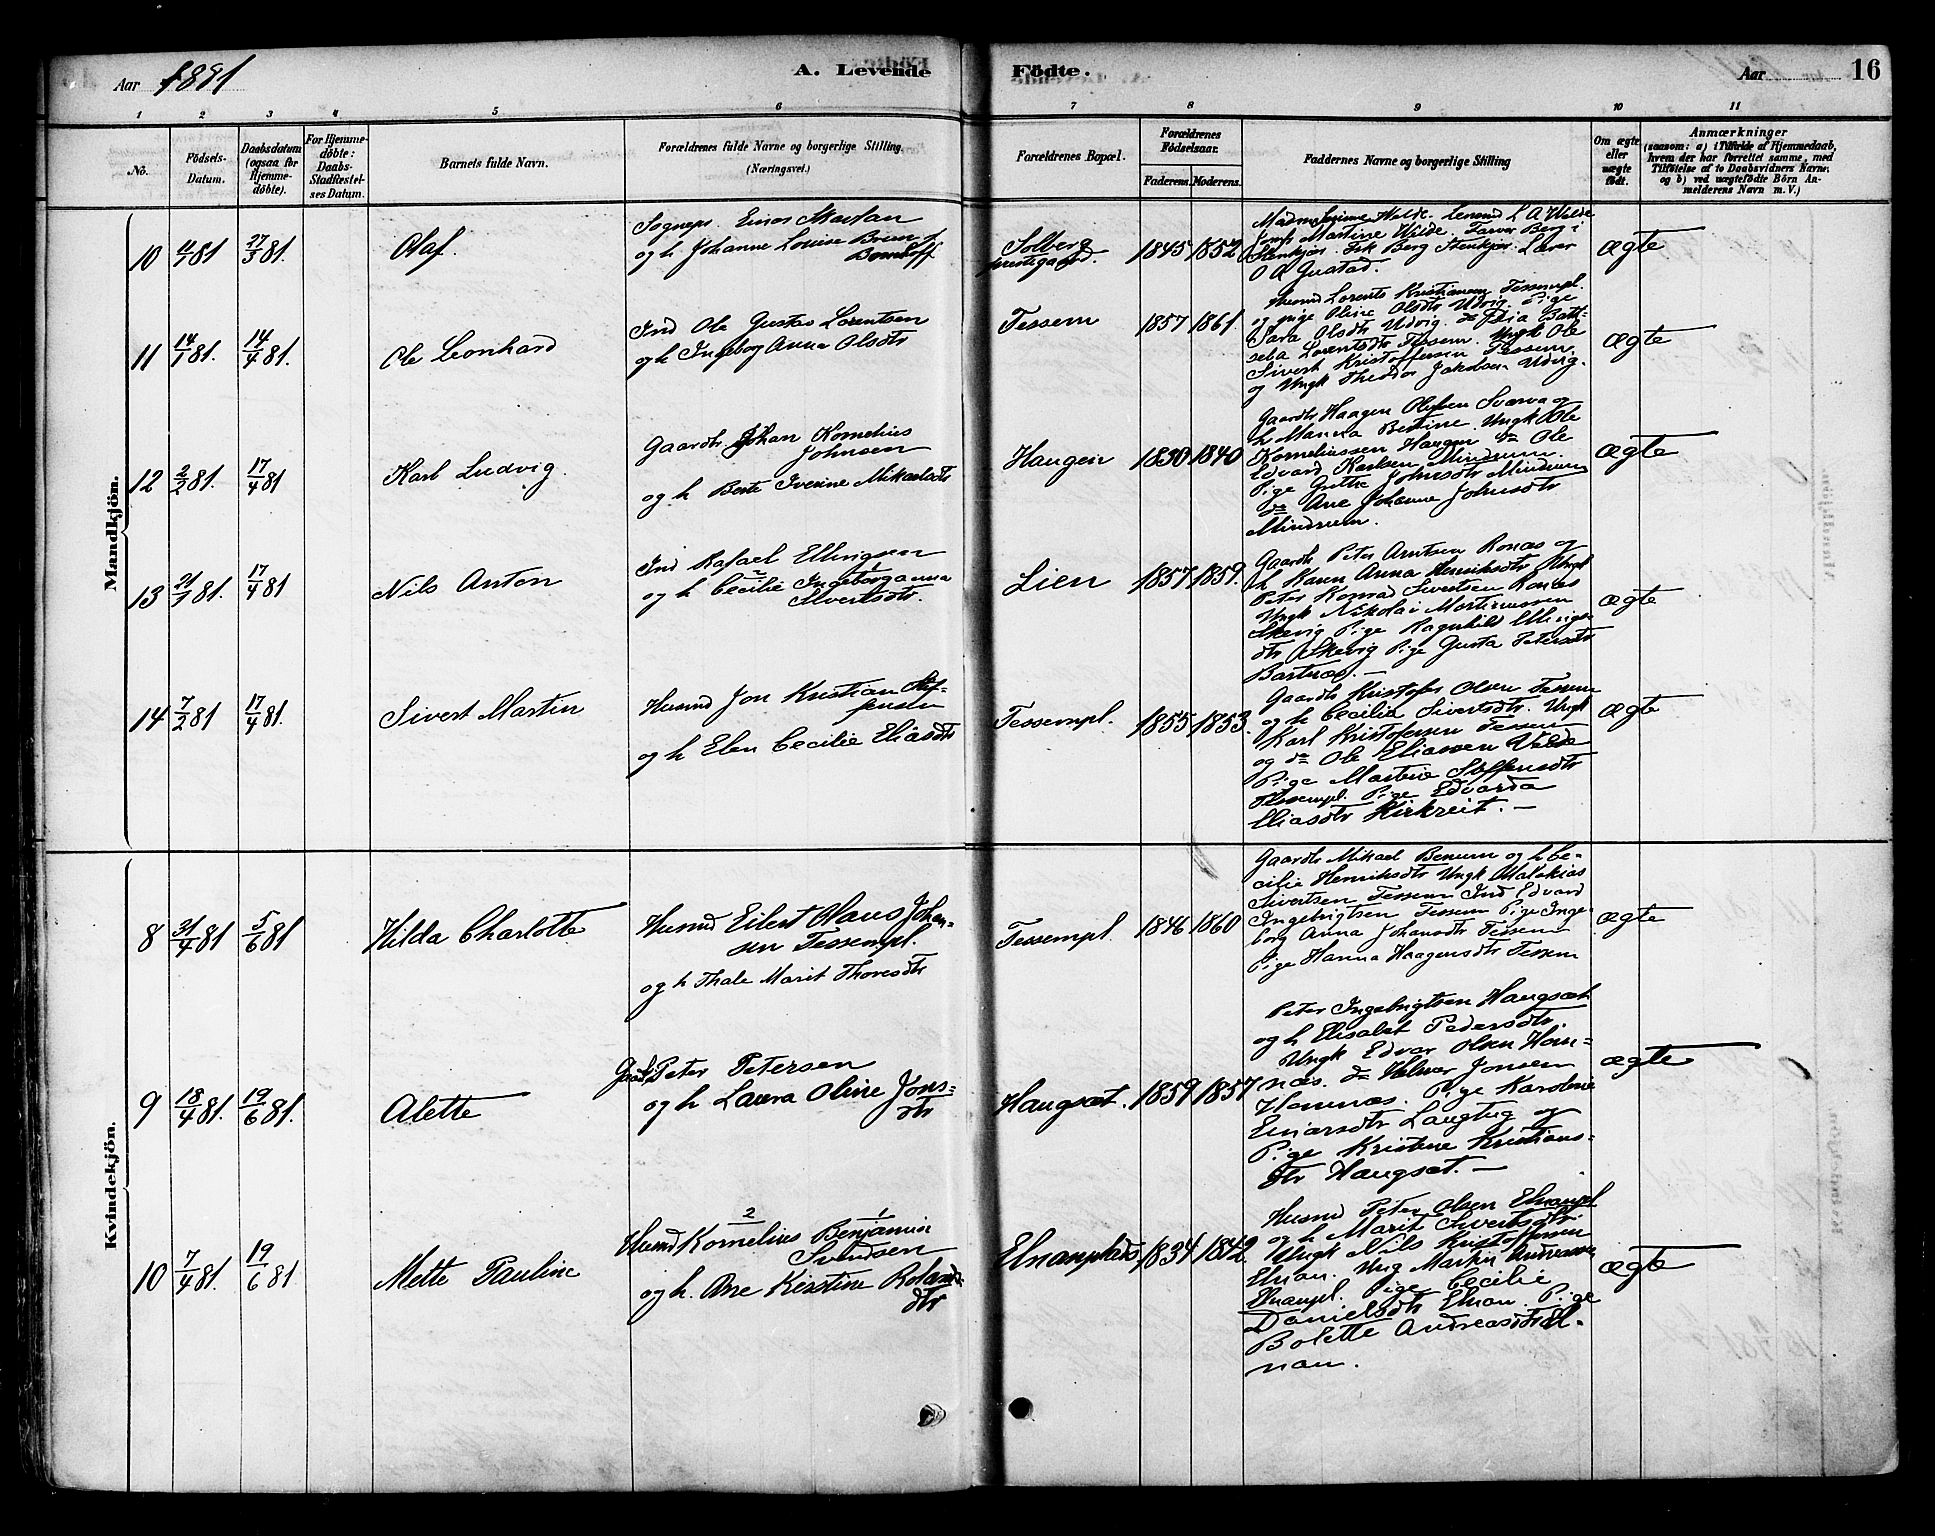 Aar 1881
A. Levende
Födte.
Aar
16
1 2 3 4 5 6 7 8 9 10 11
No.
Födsels-
Datum.
Daabsdatum
(ogsaa for
Hjemme-
døbte).
For Hjemme-
døbte:
Daabs
Stadfæstel-
ses Datum.
Barnets fulde Navn.
Forældrenes fulde Navne og borgerlige Stilling.
(Næringsvei.)
Forældrenes Bopæl.
Forældrenes
Födselsaar.
Faderens. Moderens.
Faddernes Navne og borgerlige Stilling
Om ægte
eller
uægte
født.
Anmærkninger
(saasom: a) i Tilfælde af Hjemmedaab,
hvem der har forrettet samme, med
Tilföielse af to Daabsvidners Navne,
og b) ved uægtefödte Börn An-
melderens Navn m. V.)
Mandkjön.
10
27/3 81.
Olaf.
Sogneps.
og h. Johanne Louise
Solberg
prestegaard.
1845 1852
Martine Wilde.
Stenkjær. Frk Berg Stenkjær. Lærer
O A Gustad.
ægte
11 14/1 81. 14/4 81.
Ole Leonhard
Ind Ole Gustav Lorentsen
og h Ingeborg Anna Olsdtr
Tessem
1857 1861.
Husmd Lorents Kristiansen Tessempl.
og pige Oline Olsdtr Udvig. Pige
Sara Olsdtr Udvig.
seba Lorentsdtr Tessem. Ungk Ole
Sivert Kristoffersen Tessem
og Ungk Theodor Jakobsen Udvig.
ægte
12 2/2 81. 17/4 81
Karl Ludvig.
Gaardbr. Johan Kornelius
Johnsen
og h Berte Iverine Mikaelsdtr
Haugen
1830 1840
Gaardbr Haagen Olufsen Svarva og
h Manna Bertine. Ungk Ole
Korneliussen Haugen do Ole
Edvard Karlsen Mindrum.
Pige Grethe Johnsdtr Mindrum
do Ane Johanna Johnsdtr
Mindrum.
ægte
13 17/4 81
Nils Anton
Ind Rafael Ellingsen
og h Cecilie Ingeborganna
Sivertsdtr.
Lien
1857 1859.
Gaardb Peter Arntsen Ronæs og
h Karen Anna Henriksdtr Ungk
Peter Konrad Sivertsen Ronæs
Ungk Nikolai Martinussen
Skevig Pige Ragnhild Ellings-
dtr Skevig Pige Gusta Petersdtr
ægte
14 7/2 81 17/4 81.
Sivert Martin
Husmd Jon Kristian Stef-
fensen
og h Elen Cecilie Eliasdtr
Tessempl.
1855 1853.
Gaardb Kristofer Olsen Tessem
og h Cecilia Sivertsdtr. Ungk
Karl Kristofersen Tessem
og do Ole Eliassen Velde
Pige Martine Steffensdtr
Tessempl. Pige Edvarda
Eliasdtr Kirkreit. —
ægte
Kvindekjön.
8 31/4 81 5/6 81
Hilda Charlotte
Husmd Eilert Olaus Johan-
sen Tessempl.
og h Thale Marit Thoresdtr
Tessempl.
1846 1860
Gaardb Mikael Benum og h Ce-
cilie Henriksdtr Ungk Malakias
Sivertsen Tessem Ind Edvard
Ingebrigtsen Tessem Pige Inge-
borg Anna Johansdtr Tessem
Pige Hanna Haagensdtr Tessem
ægte
9 18/4 81. 19/6 81.
Alette
Peter Petersen
og h Laura Oline Jons-
dtr
Haugsæt.
1859 1857
Peter Ingebrigtsen Haugsæt
og h Elisabet Pedersdtr.
Ungk Edvar Olsen Hem-
næs. do Halvor Jonsen
Hemnæs. Pige Karoline
Einarsdtr Langtug og
Pige Kristine Kristians-
dtr Haugsæt. —
ægte
10 7/4 81. 19/6 81
Mette Pauline
Husmd Kornelius Benjamin
Svendsen
og h. Ane Kirstine Rolands
dtr
Elnanplads
1834 1842.
Husmd Peter Olsen Elnanpl
og h Marit Sivertsdtr
Ungk Nils Kristoffersen
Elnan. Ung Martin Andreassen
Elnanpl. Pige Cecilie
Danielsdtr Elnan. Pige
Bolette Andreasdtr El-
nan.
ægte